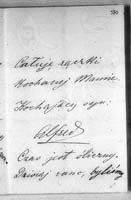 Całuję rączki
Kochanej Mamie
Kochający syn
Alfred
Czas jest śliczny.
Dzisiaj rano, byliśmy